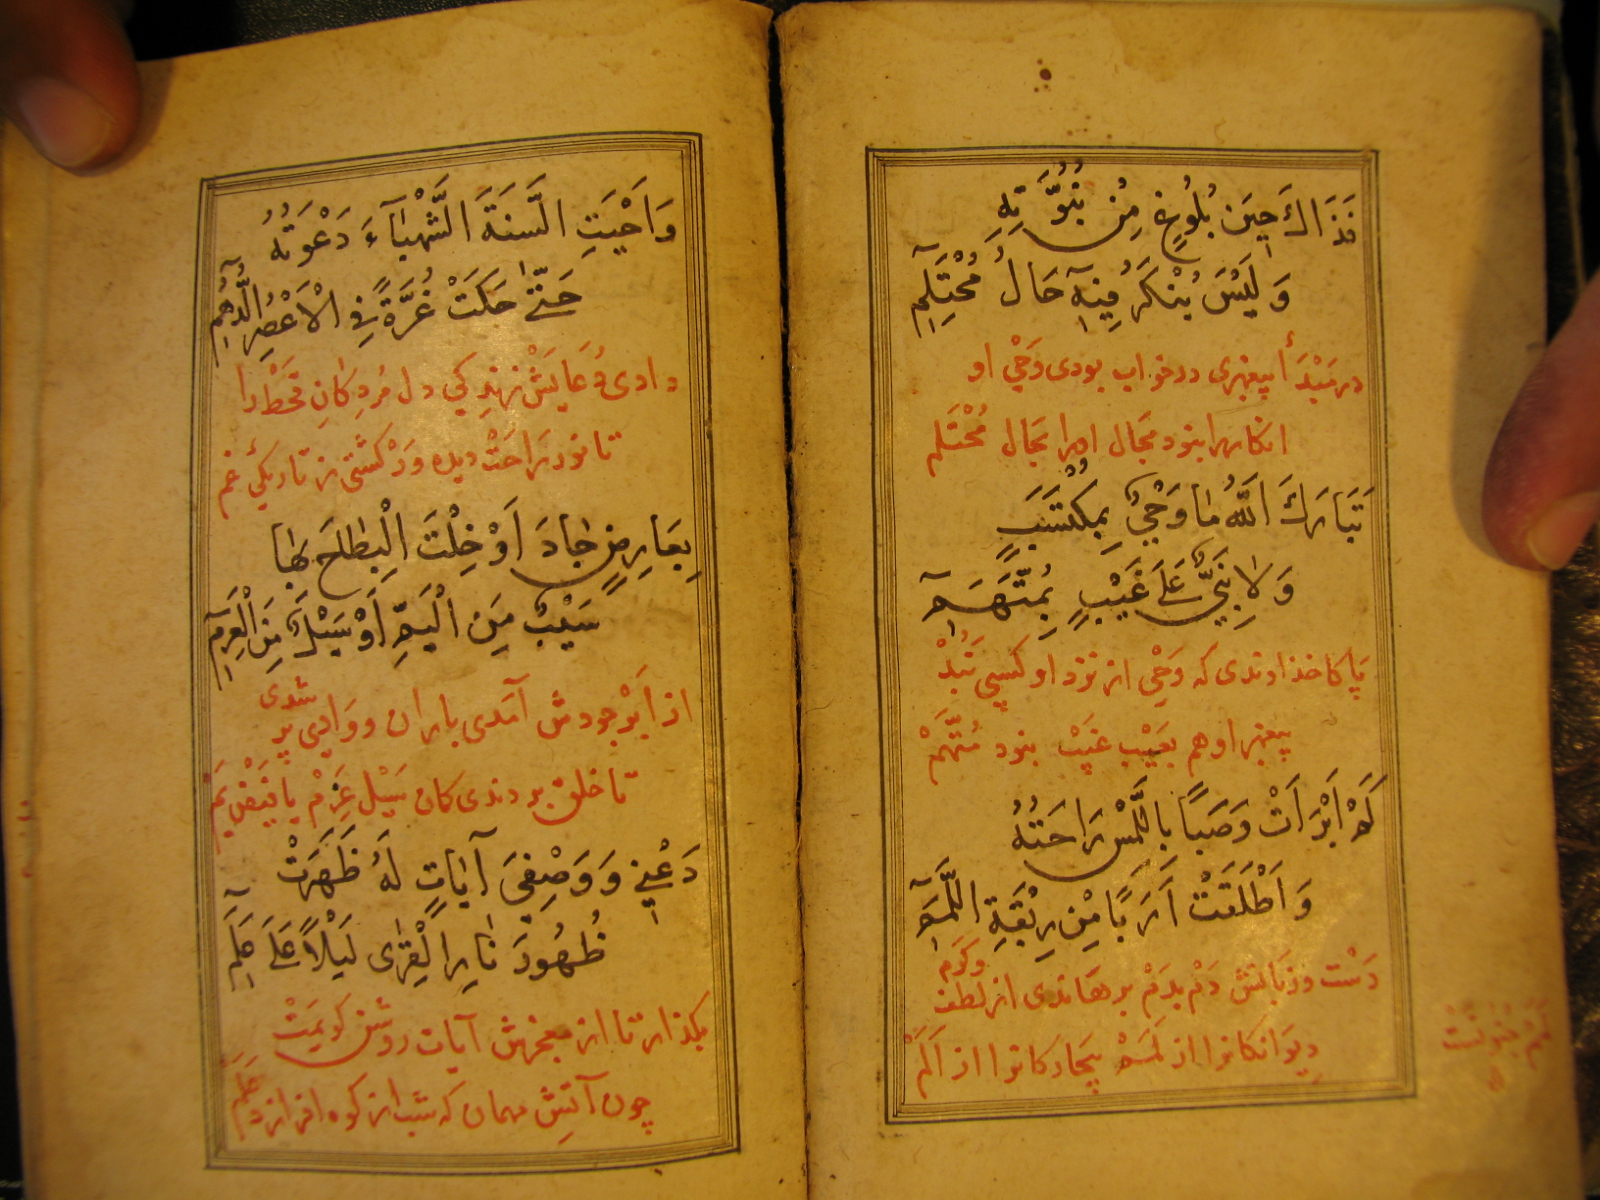 فَذَاكَ حِينَ بُلُوغٍ مِنْ نُبُوَّتِهِ
وَلَيْسَ يُنْكَرُ فِيهِ حَالُ مُحْتَلِمِ
در مَبْدَأ پیغمبری در خواب بودی وَحْيِ او
انکارها نبود مجال امرا بحال مُحْتَلم
تَبَارَكَ اَللّٰهُ مَا وَحْيٌ بِمُكْتَسَبٍ
وَلَا نَبِيٌّ عَلَى غَيْبٍ بِمُتَّهَمِ
پاکا خداوندی که وَحْی از نزد او کسبی نَبُدْ
پیغمبر او هم بعَیْب غَیْب نبود مُتَّهَمْ
كَمْ اَبْرَأَتْ وَصَبًا بِاللَّمْسِ رَاحَتُهُ
وَاَطْلَقَتْ اَرَبًا مِنْ رِبْقَةِ اللَّمَمِ
دَسْت و زبانش دَم بدم برهاندی از لطف وکَرَم
دیوانکانرا از لَمَم بیچارکانرا از اَلَمْ
لَمَمْ جُنونَسْت
وَاَحْيَتِ السَّنَةَ الشَّهْبَاءَ دَعْوَتُهُ
حَتّٰى حَكَتْ غُرَّةً فِي الْاَعْصُرِ الدُّهُمِ
دادی دُعایَش زندکی دل مُردکانِ قَحْط را
تا نور رَاحَتْ دیده وَرْ کشتی ز تاریکیِّ غم
بِعَارِضٍ جَادَ اَوْ خِلْتَ الْبِطَاحَ بِهَا
سَيْبٌ مِنَ الْيَمِّ اَوْ سَيْلٌ مِنَ الْعَرِمِ
از اَبْر جودش آمدی باران و وادی پر شدی
تا خلق بردندی کان سَیْل عَرِمْ یا فَیْض یَمْ
دَعْنِي وَوَصْفِيَ آيَاتٍ لَهُ ظَهَرَتْ
ظُهُورَ نَارِ الْقِرٰى لَيْلًا عَلَى عَلَمِ
بکذار تا از معجزش آیات روشن کویمَتْ
چون آتش مهمان که شب از کوه افرازد عَلَم